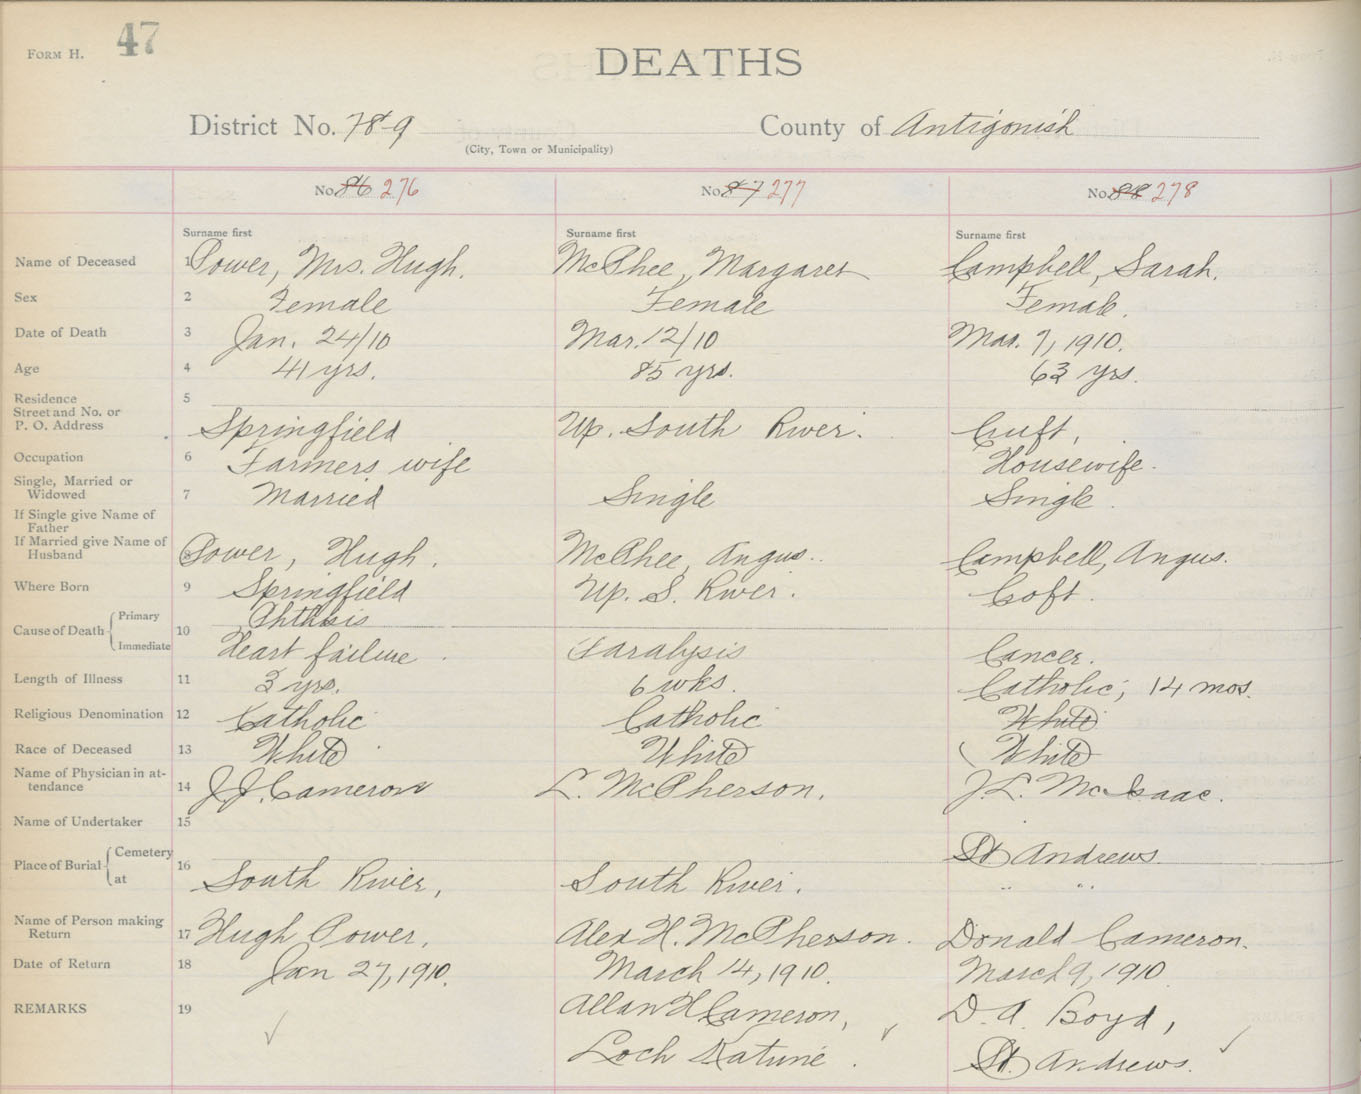 FORM H. 47
DEATHS
District No. 78-9 County of Antigonish
(City, Town or Municipality)
No. 86 276 No. 87 277 No. 88 278
Surname first Surname first Surname first
Name of Deceased 1 Power, Mrs. Hugh. McPhee, Margaret Campbell, Sarah.
Sex 2 Female Female Female.
Date of Death 3 Jan. 24/10 Mar. 12/10 Mar. 7, 1910.
Age 4 41 yrs. 85 yrs. 63 yrs.
Residence 5
Street and No. or
P. O. Address Springfield Up. South River.
Occupation 6 Farmers wife Housewife.
Single, Married or
Widowed 7 Married Single Single.
If Single give Name of
Father
If Married give Name of
Husband 8 Power, Hugh. McPhee, Angus. Campbell, Angus.
Where Born 9 Springfield Up. S. River.
Cause of Death Primary 10 Phthisis
Immediate Heart failure Paralysis Cancer.
Length of Illness 11 3 yrs. 6 wks. Catholic; 14 mos.
Religious Denomination 12 Catholic Catholic White
Race of Deceased 13 White White White
Name of Physician in at-
tendance 14 J.J. Cameron L. McPherson. J.L. McIsaac.
Name of Undertaker 15
Place of Burial Cemetery 16 St Andrews
at South River, South River. " "
Name of Person making
Return 17 Hugh Power. Alex H. McPherson. Donald Cameron.
Date of Return 18 Jan 27, 1910. March 14, 1910. March 9, 1910
REMARKS 19 Allan H Cameron, D. A. Boyd,
Loch Katrine. St. Andrews.